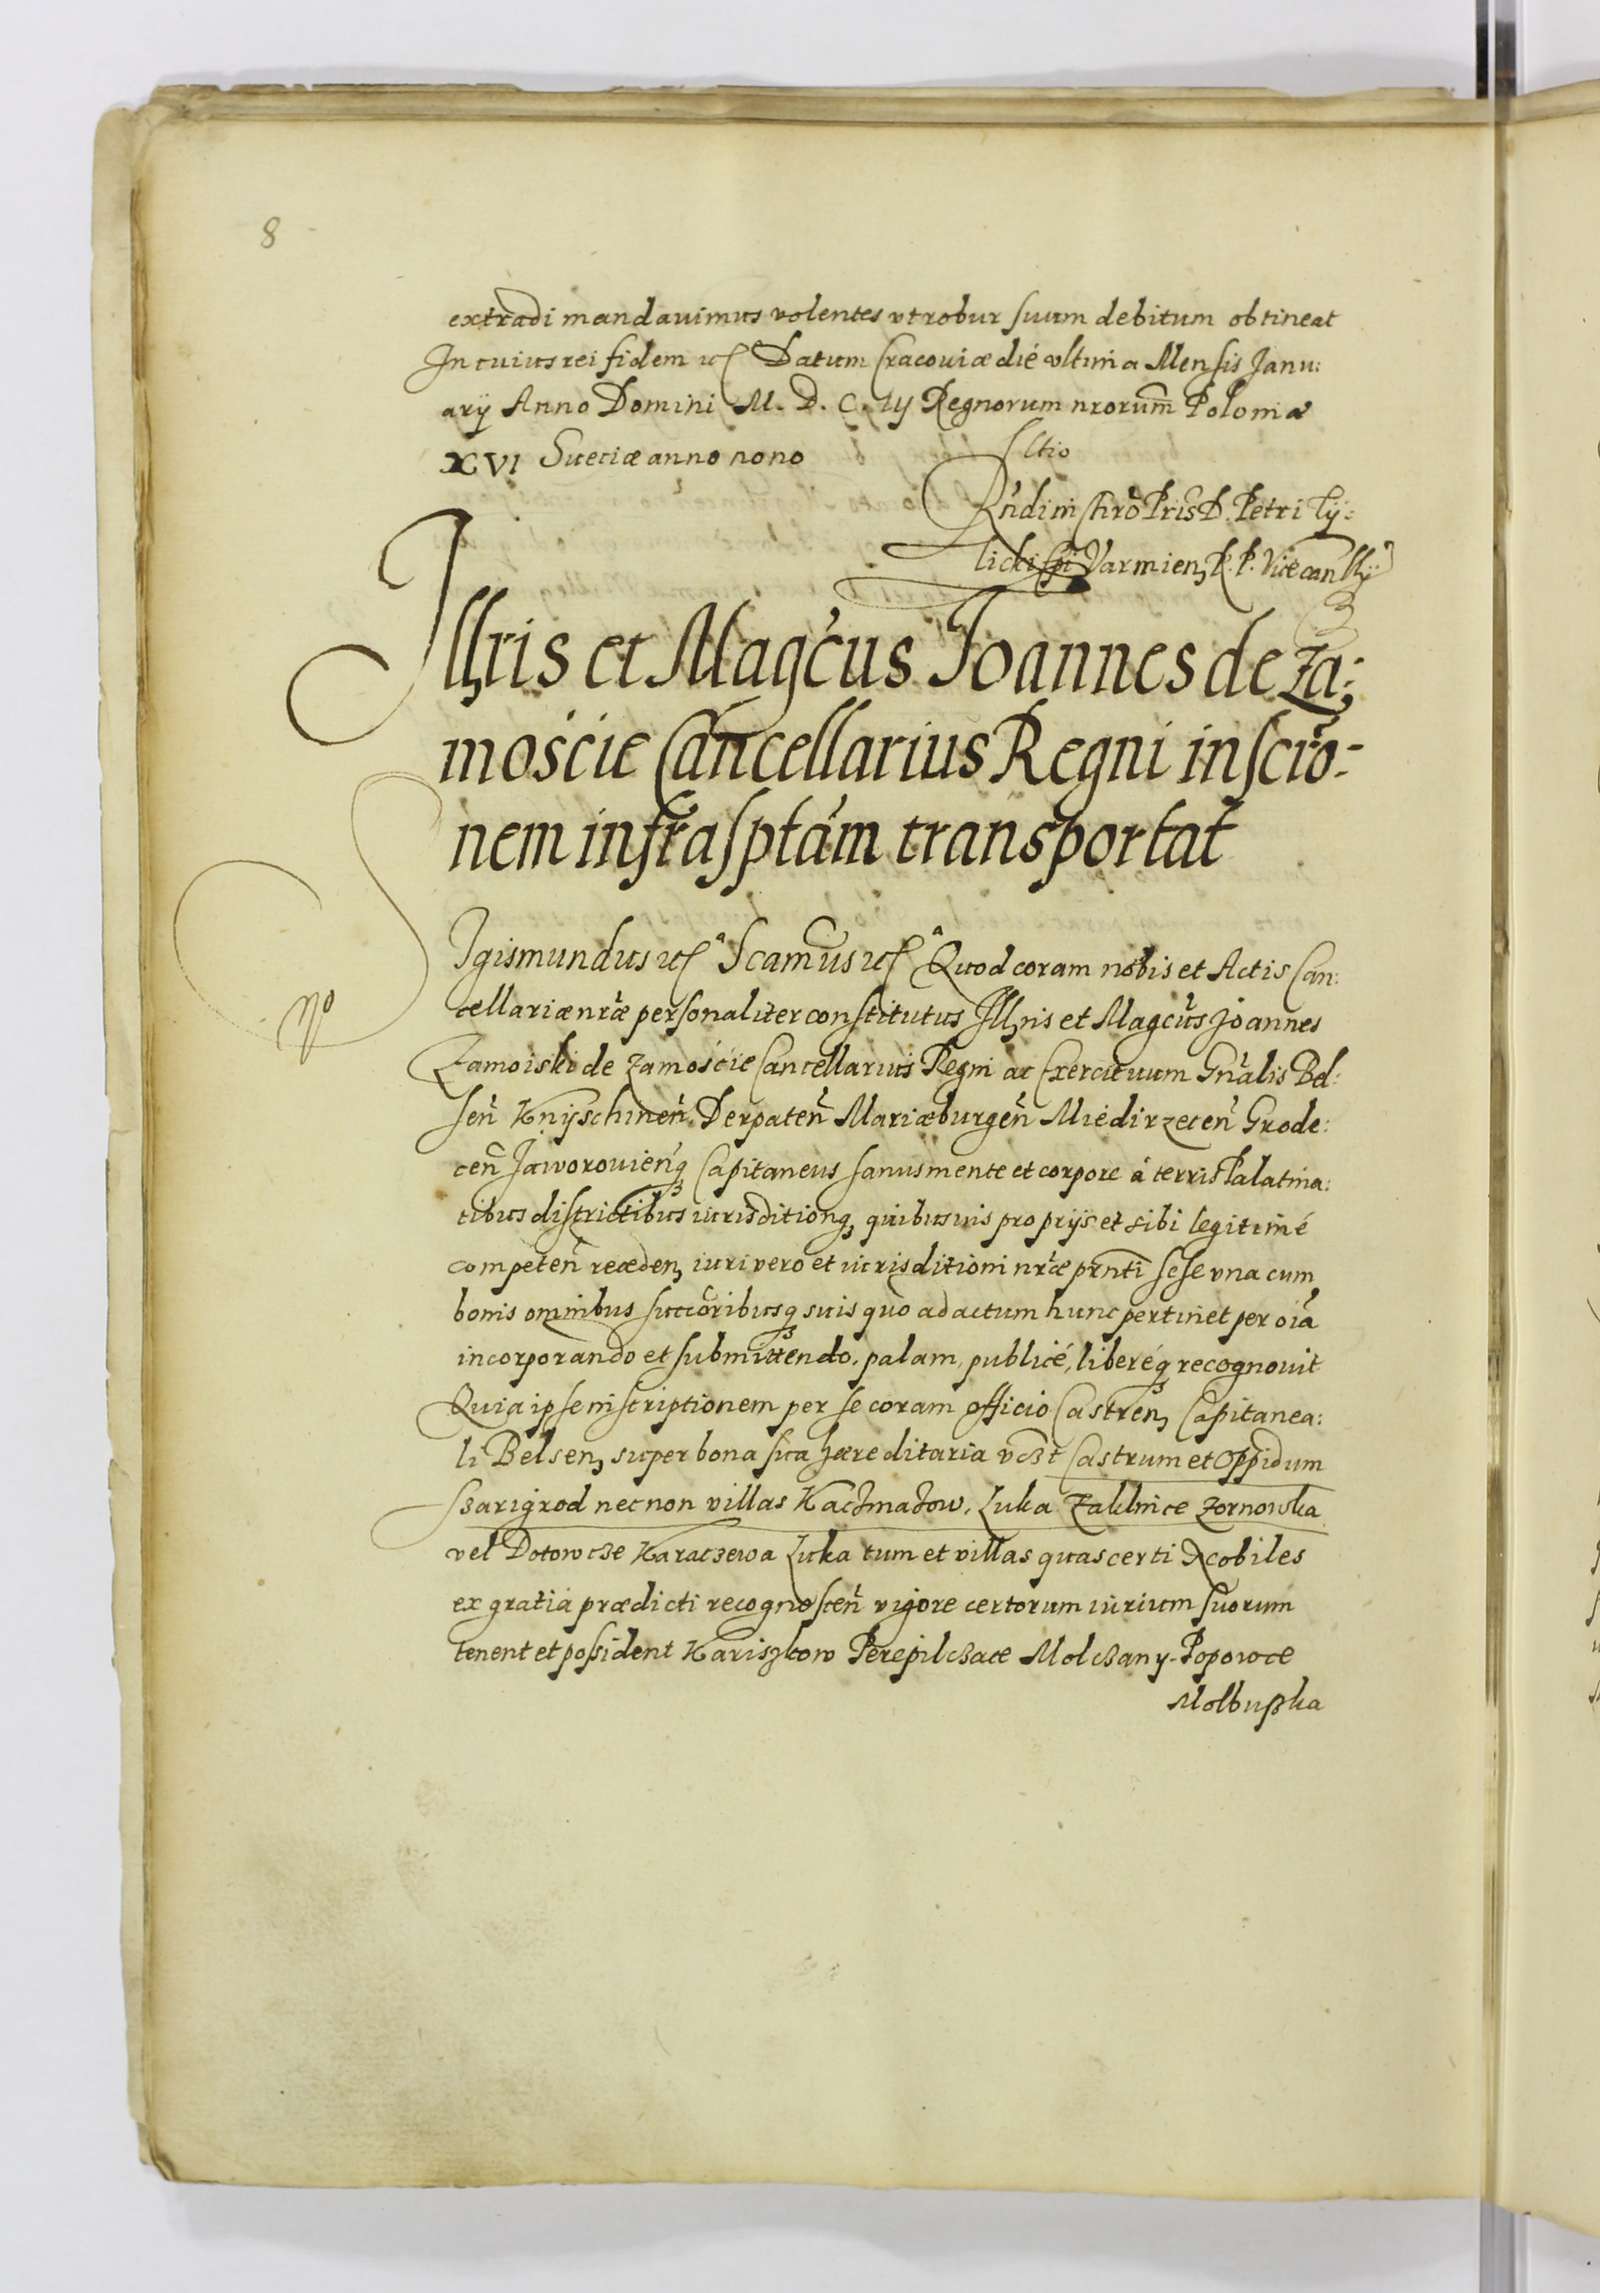 8
extradi mandauimus volentes vt robur suum debitum obtineat
In cuius rei fidem etc Datum Cracouiæ dié vltima Mensis Janu:
arÿ Anno Domini M. D. C. IIJ Regnorum nrorum Poloniæ
XVI Sueciæ anno nono
Rńdi in Chrõ Pris D. Petri Tÿ:
licki Epi Varmien, R. P. Vicecanllÿ
Illris et Magc̃us Joannes de Za:
moście Cancellarius Regni inscrõ:
nem infrasptãm transportat
No
Sigismundus etc Sc̃amus etc Quod coram nobis et Actis Can:
cellariæ nrãe personaliter constitutus Illris et Magc̃us Joannes
Zamoiski de Zamoście Cancellarius Regni ac Exercituum Gnãlis Bel:
sen̄ Knÿschinen̄ Derpaten̄ Mariæburgen̄ Miedirzecen̄ Grode:
cen̄ Jaworouien̄q3 Capitaneus sanus mente et corpore á terris Palatina:
tibus districtibus iurisditionq3 quibusuis proprijs et sibi legitimé
competen̄ receden, iuri vero et iurisditioni nrãe prn̄ti sese vna cum
bonis omnibus succõribusq3 suis quo ad actum hunc pertinet per oiã
incorporando et submittendo, palam, publicé, liberéq3 recognouit
Quia ipse inscriptionem per se coram officio Castren, Capitanea:
li Belsen, super bona sua hæreditaria vc3t Castrum et Oppidum
Sarigrod necnon villas Kaczmazow, Luka Zaklnice Zornowka
vel Dotowcze Karaczewa Luka tum et villas quas certi Nobiles
ex gratia prædicti recognoscen̄ vigore certorum iurium suorum
tenent et possident Kariszkow Perepilczace Molczany Popowce
Molbuszka